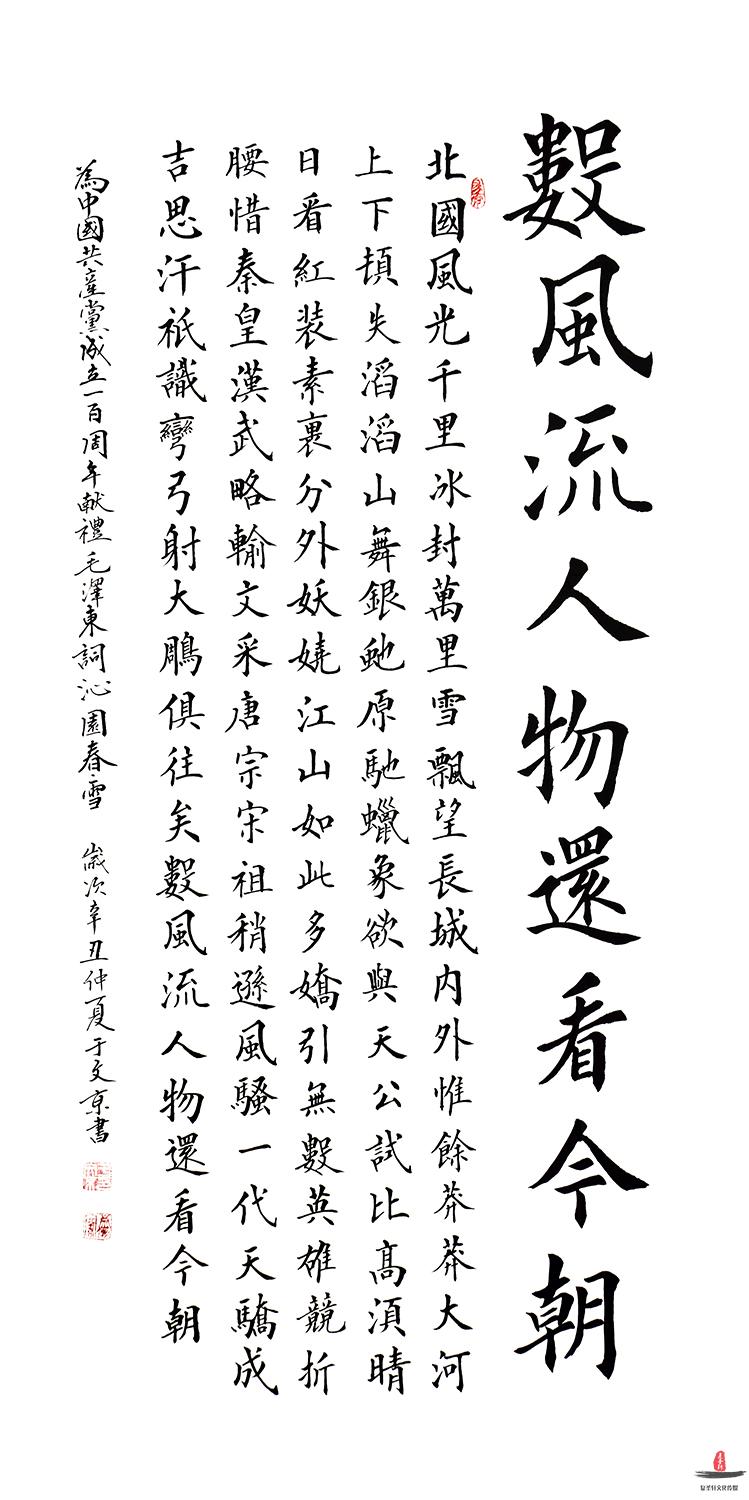 數風流人物還看今朝
北國風光千里冰封萬里雪飄望長城内外惟餘莽莽大河
上下頓失滔滔山舞銀虵原馳蠟象欲與天公試比髙湏晴
日看紅装素裹分外妖嬈江山如此多嬌引無數英雄競折
腰惜秦皇漢武略輸文采唐宗宋祖稍遜風騷一代天驕成
吉思汗祇識彎弓射大鵰俱往矣數風流人物還看今朝
為中國共産黨成立一百周年献禮 毛澤東詞沁園春雪 歲次辛丑仲夏于文京書